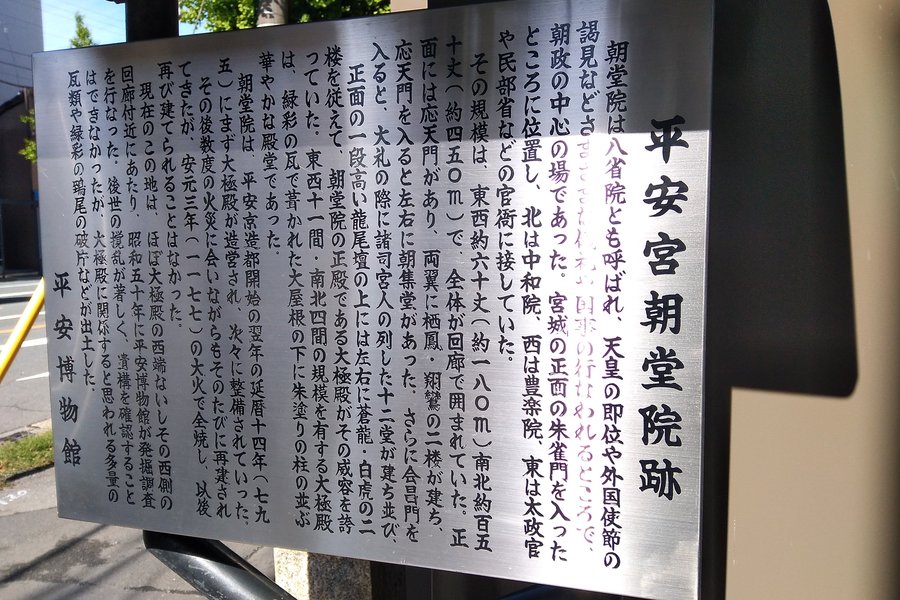 平安宮朝堂院跡
朝堂院は八省院とも呼ばれ、天皇の即位や外国使節の
謁見などさまざまな儀礼や国事の行なわれるところで、
朝政の中心の場であった。宮城の正面の朱雀門を入った
ところに位置し、北は中和院、西は豊楽院、東は太政官
や民部省などの官衙に接していた。
その規模は、東西約六十丈(約一八〇m)南北約百五
十丈(約四五〇m)で、全体が回廊で囲まれていた。正
面には応天門があり、両翼に栖鳳・翔鸞の二楼が建ち、
応天門を入ると左右に朝集堂があった。さらに会昌門を
入ると、大札の際に諸司官人の列した十二堂が建ち並び、
正面の一段高い龍尾壇の上には左右に蒼龍・白虎の二
楼を従えて、朝堂院の正殿である大極殿がその威容を誇
っていた。東西十一間・南北四間の規模を有する大極殿
は、緑彩の瓦で葺かれた大屋根の下に朱塗りの柱の並ぶ
華やかな殿堂であった。
朝堂院は、平安京造都開始の翌年の延暦十四年(七九
五)にまず大極殿が造営され、次々に整備されていった。
その後数度の火災に会いながらもそのたびに再建され
てきたが、安元三年(一一七七)の大火で全焼し、以後
再び建てられることはなかった。
現在のこの地は、ほぼ大極殿の西端ないしその西側の
回廊付近にあたり、昭和五十年に平安博物館が発掘調査
を行なった。後世の撹乱が著しく、遺構を確認すること
はできなかったが、大極殿に関係すると思われる多量の
瓦類や緑彩の鴟尾の破片などが出土した。
平安博物館